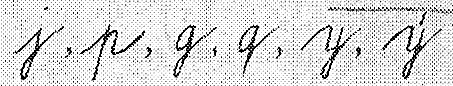 j, p, g, q, y, ý